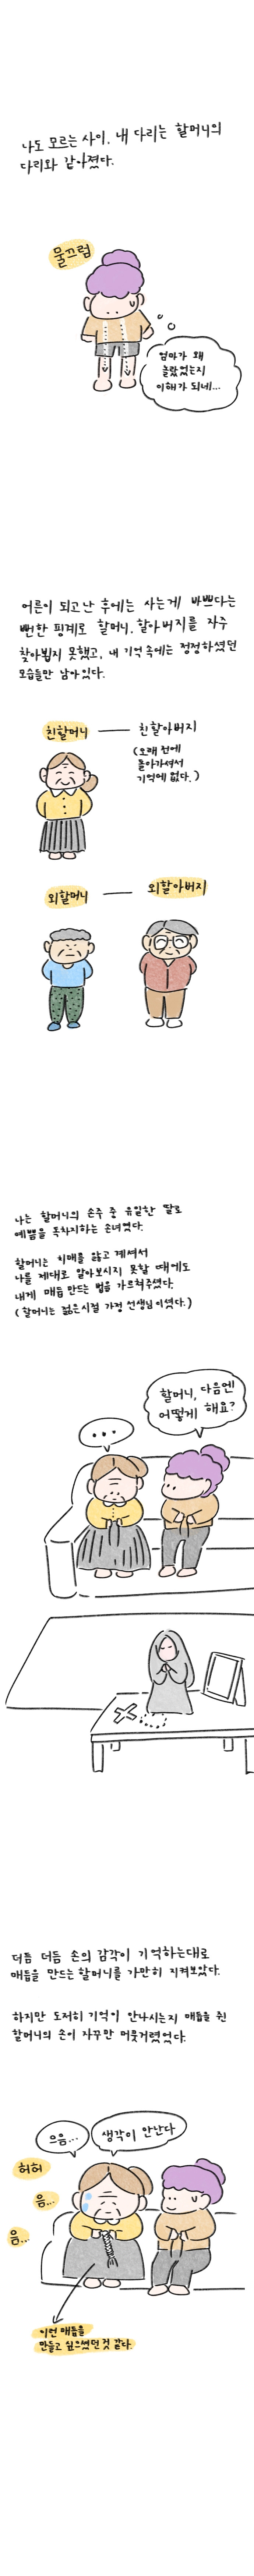 나도 모르는 사이, 내 다리는 할머니의
다리와 같아졌다.
물끄럼
엄마가 왜
놀랐었는지
이해가 되네...
어른이 되고난 후에는 사는게 바쁘다는
뻔한 핑계로 할머니, 할아버지를 자주
찾아뵙지 못했고, 내 기억속에는 정정하셨던
모습들만 남아있다.
친할머니 친할아버지
(오래 전에
돌아가셔서
기억에 없다.)
외할머니 외할아버지
나는 할머니의 손주 중 유일한 딸로
예쁨을 독차지하는 손녀였다.
할머니는 치매를 앓고 계셔서
나를 제대로 알아보시지 못할 때에도
내게 매듭 만드는 법을 가르쳐주셨다.
(할머니는 젊은시절 가정 선생님이셨다.)
할머니, 다음엔
어떻게 해요?
...
더듬 더듬 손의 감각이 기억하는대로
매듭을 만드는 할머니를 가만히 지켜보았다.
하지만 도저히 기억이 안나시는지 매듭을 쥔
할머니의 손이 자꾸만 머뭇거렸었다.
으음...
생각이 안난다
허허
음...
음...
이런 매듭을
만들고 싶으셨던 것 같다.